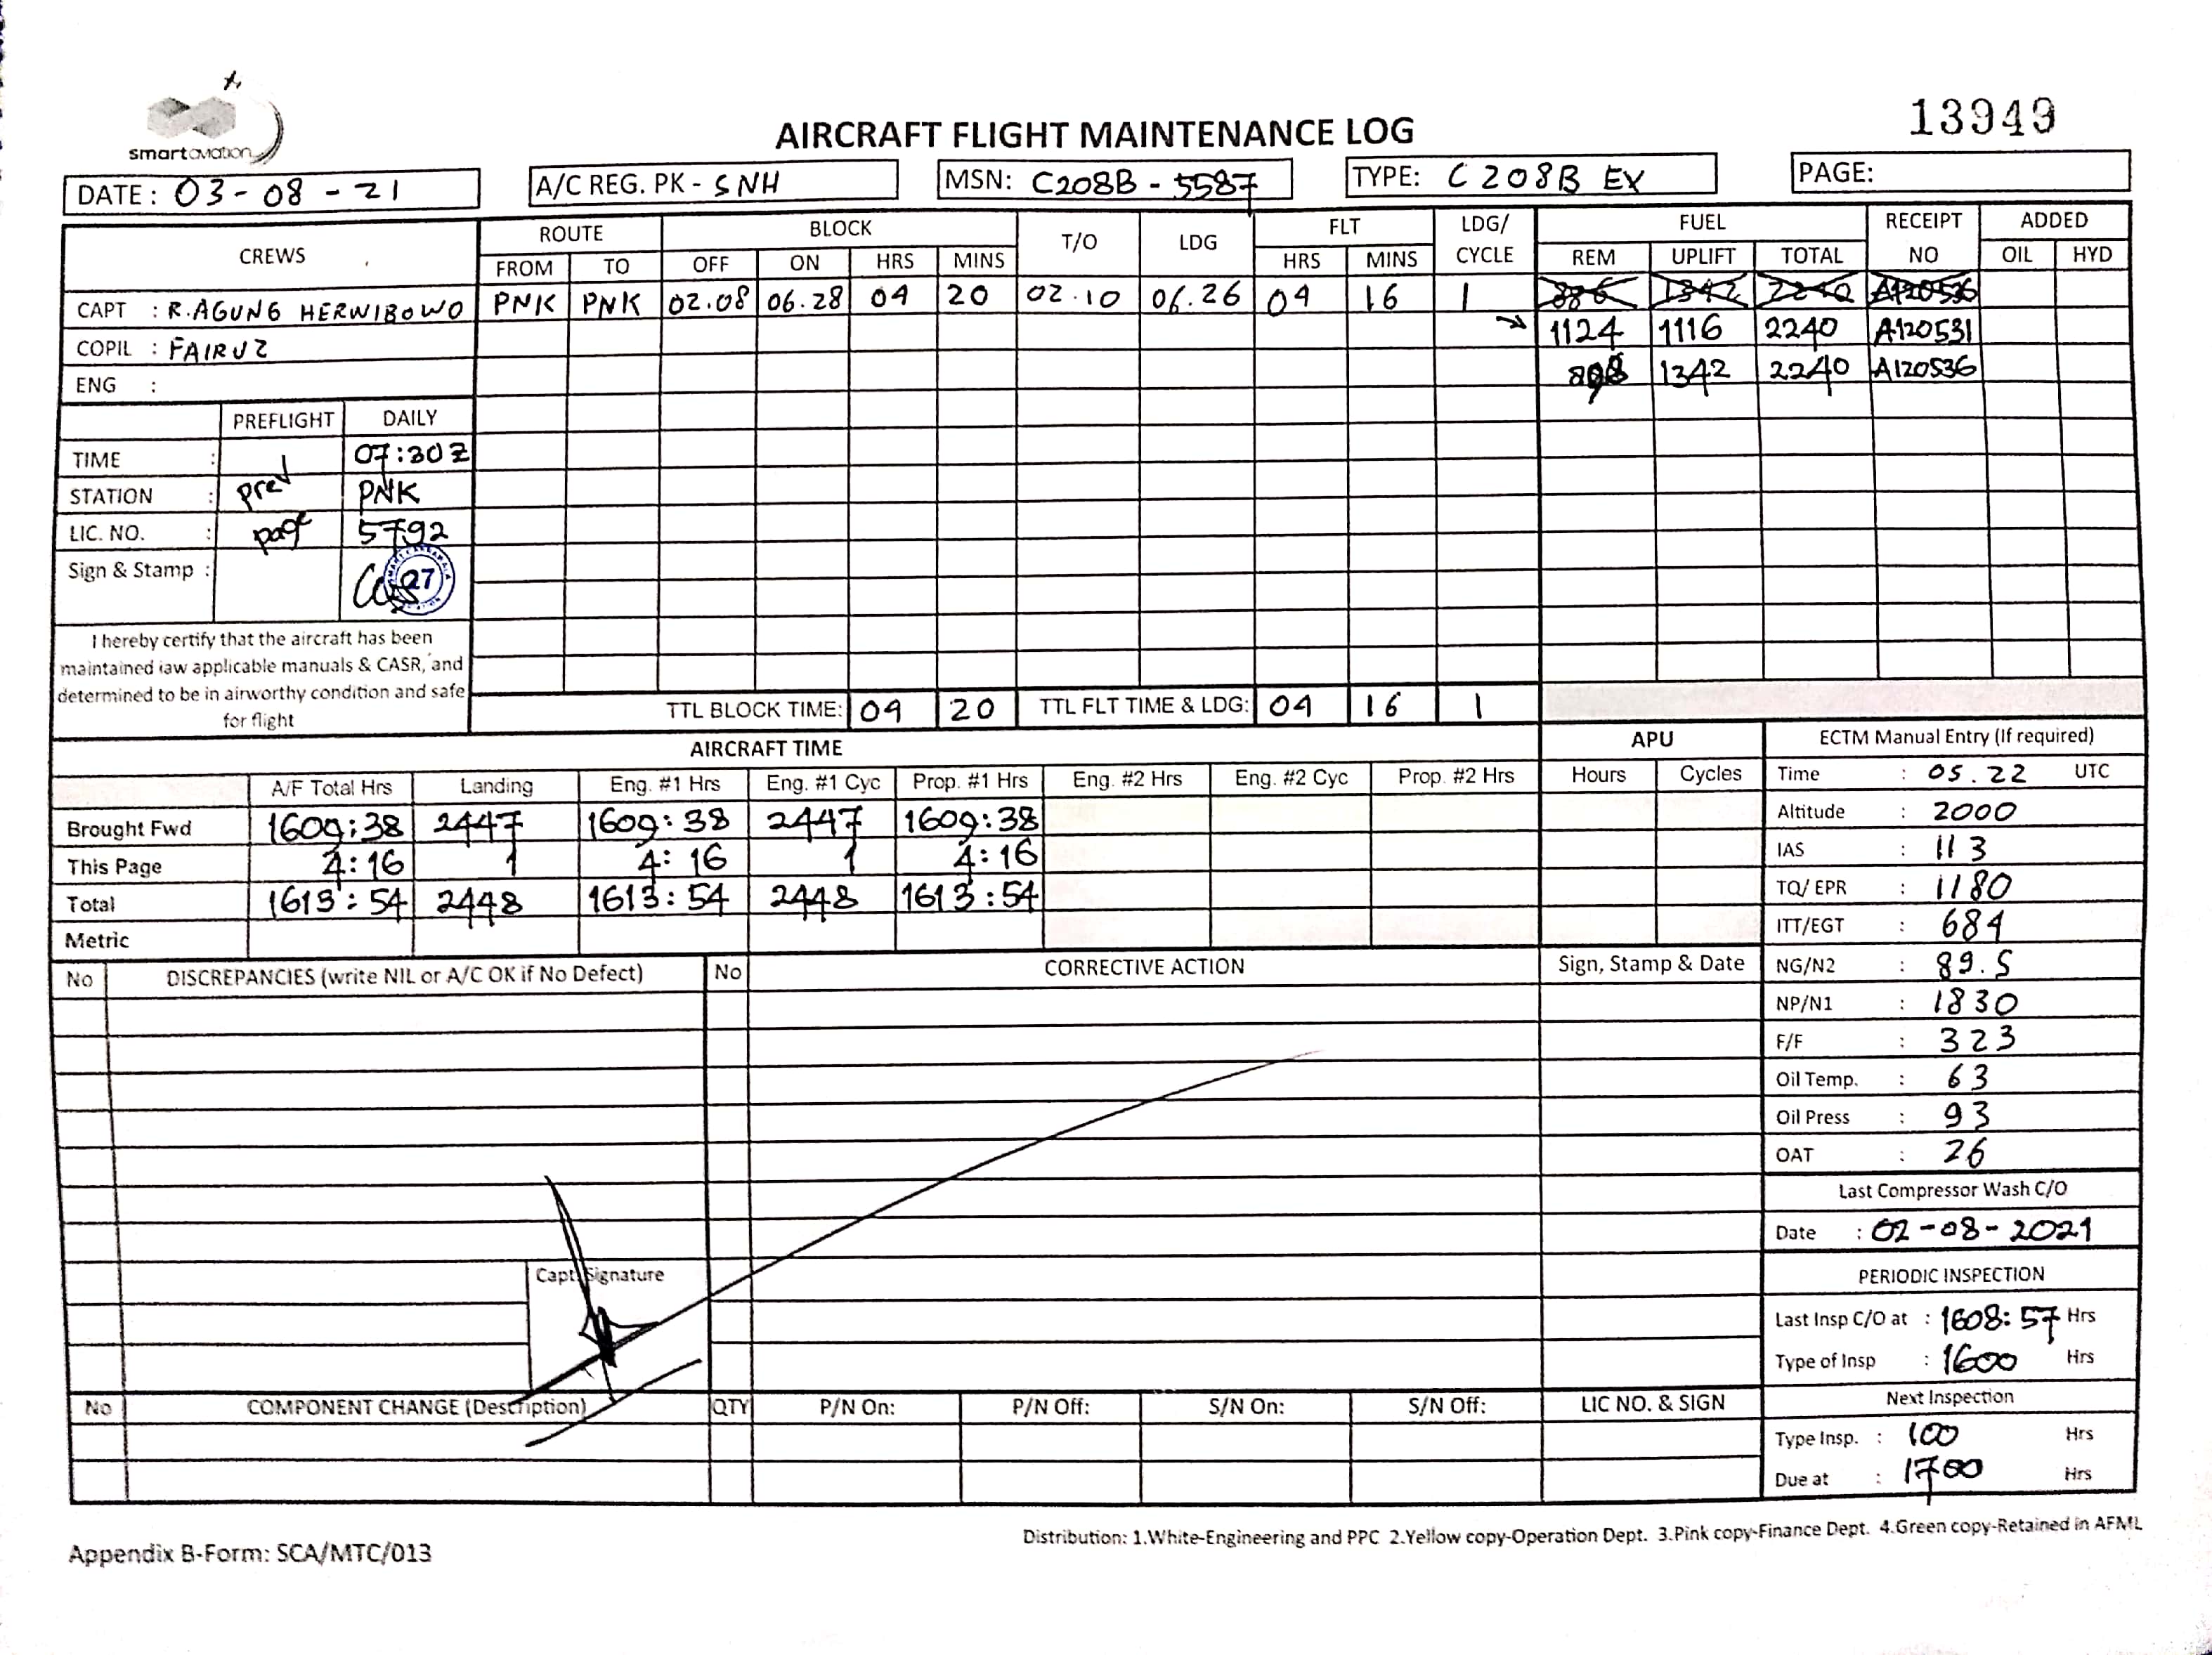 smartaviation
AIRCRAFT FLIGHT MAINTENANCE LOG
13949
DATE : 03-08-21
A/C REG. PK - SNH
MSN: C208B - 5587
TYPE: C208B EX
PAGE:
CREWS ROUTE BLOCK T/O LDG FLT LDG/ CYCLE FUEL RECEIPT NO ADDED
FROM TO OFF ON HRS MINS HRS MINS REM UPLIFT TOTAL OIL HYD
CAPT : R.AGUNG HERWIBOWO PNK PNK 02.08 06.28 04 20 02.10 06.26 04 16 1 886 1342 2240 A120536
COPIL : FAIRUZ 1124 1116 2240 A120531
ENG : 1342 2240 A120536
PREFLIGHT DAILY
TIME : 07:30Z
STATION : prev PNK
LIC. NO. : page 5792
Sign & Stamp : 27
I hereby certify that the aircraft has been
maintained iaw applicable manuals & CASR, and
determined to be in airworthy condition and safe
for flight
TTL BLOCK TIME: 04 20 TTL FLT TIME & LDG: 04 16 1
AIRCRAFT TIME APU
A/F Total Hrs Landing Eng. #1 Hrs Eng. #1 Cyc Prop. #1 Hrs Eng. #2 Hrs Eng. #2 Cyc Prop. #2 Hrs Hours Cycles
Brought Fwd 1609:38 2447 1609:38 2447 1609:38
This Page 4:16 1 4:16 1 4:16
Total 1613:54 2448 1613:54 2448 1613:54
Metric
ECTM Manual Entry (If required)
Time : 05.22 UTC
Altitude : 2000
IAS : 113
TQ/ EPR : 1180
ITT/EGT : 684
NG/N2 : 89.5
NP/N1 : 1830
F/F : 323
Oil Temp. : 63
Oil Press : 93
OAT : 26
Last Compressor Wash C/O
Date : 02-08-2021
PERIODIC INSPECTION
Last Insp C/O at : 1608:57 Hrs
Type of Insp : 1600 Hrs
Next Inspection
Type Insp. : 100 Hrs
Due at : 1700 Hrs
No DISCREPANCIES (write NIL or A/C OK if No Defect) No CORRECTIVE ACTION Sign, Stamp & Date
Capt. Signature
No COMPONENT CHANGE (Description) QTY P/N On: P/N Off: S/N On: S/N Off: LIC NO. & SIGN
Distribution: 1.White-Engineering and PPC 2.Yellow copy-Operation Dept. 3.Pink copy-Finance Dept. 4.Green copy-Retained in AFML
Appendix B-Form: SCA/MTC/013